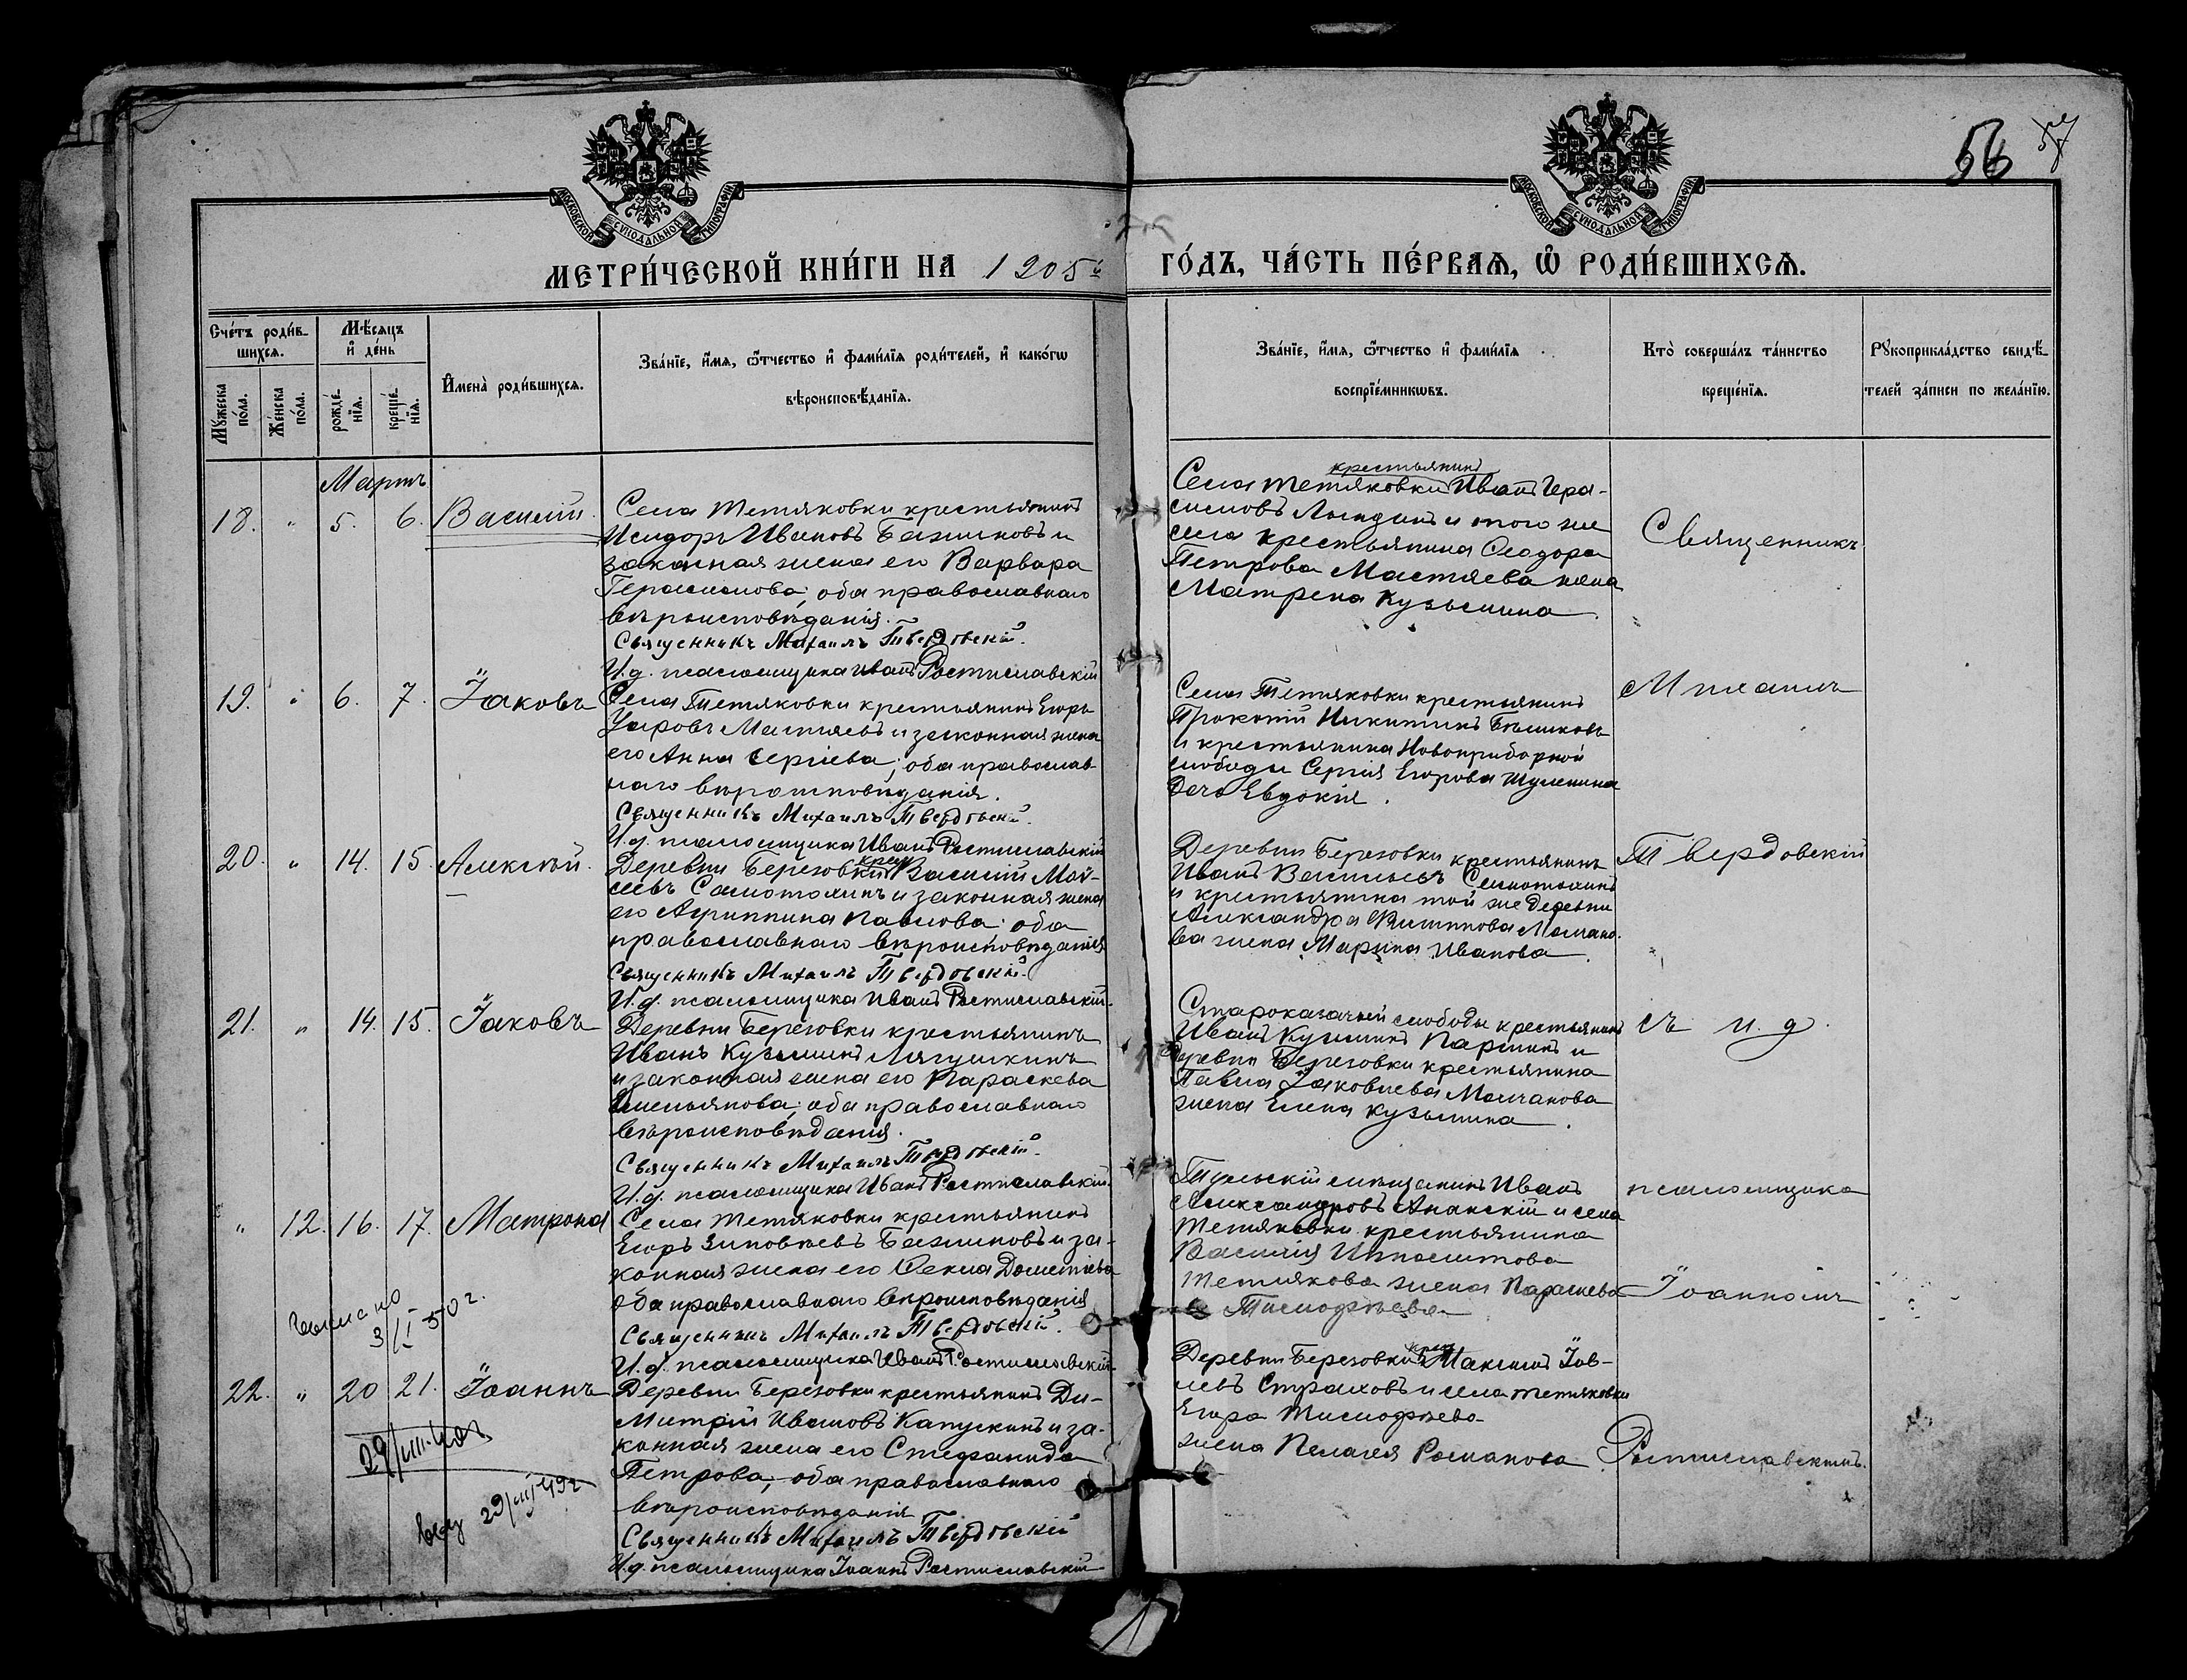 56 57
МОСКОВСКОЙ СѴНОДАЛЬНОЙ ТИПОГРАФІИ
МОСКОВСКОЙ СѴНОДАЛЬНОЙ ТИПОГРАФІИ
МЕТРИ́ЧЕСКОЙ КНИ́ГИ НА 1905й
ГО́ДЪ, ЧА́СТЬ ПЕ́РВАѦ, Ѽ РОДИ́ВШИХСѦ.
Сче́тъ роди́в-
шихсѧ.
Мꙋ́жеска по́ла.
Же́нска по́ла.
Мѣ́сѧцъ и҆ де́нь
рожде́-
нїѧ.
креще́-
нїѧ.
И҆мена̀ роди́вшихсѧ.
Зва́нїе, и҆́мѧ, ѻ҆́тчество и҆ фами́лїѧ роди́телей, и҆ како́гѡ
вѣроисповѣ́данїѧ.
Зва́нїе, и҆́мѧ, ѻ҆́тчество и҆ фами́лїѧ
воспрїе́мникѡвъ.
Кто̀ соверша́лъ та́инство
креще́нїѧ.
Рꙋкоприкла́дство свидѣ́-
телей за́писи по жела́нїю.
Мартъ
18. " 5. 6. Василій.
Села Тетяковки крестьянинъ
Исидоръ Ивановъ Бажиновъ и
законная жена его Варвара
Герасимова, оба православнаго
вѣроисповѣданія.
Священникъ Михаилъ Твердовскій.
И. д. псаломщика Иванъ Ростиславскій
крестьянинъ
Села Тетяковки Иванъ Гера-
симовъ и того же
села крестьянина Ѳеодора
Петрова Мастяева жена
Матрена Кузьмина
Священникъ
19. " 6. 7. Іаковъ
Села Тетяковки крестьянинъ Егоръ
Уаровъ Мастяевъ и законная жена
его Анна Сергіева, оба православ
наго вѣроисповѣданія.
Священникъ Михаилъ Твердовскій.
И. д. псаломщика Иванъ Ростиславскій
Села Тетяковки крестьянинъ
Прокопій Никитинъ
и крестьянина Новоприборной
слободы Сергія Егорова
дочь Евдокія.
Михаилъ
20. " 14. 15. Алексѣй.
Деревни Березовки крец Василій Мой-
сеевъ Самотохинъ и законная жена
его Агриппина Павлова: оба
православнаго вѣроисповѣданія
Священникъ Михаилъ Твердовскій.
И. д. псаломщика Иванъ Ростиславскій.
Деревни Березовки крестьянинъ
Иванъ Васильевъ Самотохинъ
и крестьянина той же деревни
Александра Филиппова Молчано-
ва жена Марина Иванова.
Твердовскій
21. " 14. 15. Іаковъ
Деревни Березовки крестьянинъ
Иванъ Кузьминъ Лягушкинъ
и законная жена его Параскева
Емельянова; оба православнаго
вѣроисповѣданія.
Священникъ Михаилъ Твердовскій.
И. д. псаломщика Иванъ Ростиславскій.
Староказачьей слободы крестьянинъ
Иванъ Кузминъ Паршинъ и
деревни Березовки крестьянина
Павла Іаковлева Молчанова
жена Елена Кузьмина.
съ и. д.
" 12. 16. 17. Матрона
Села Тетяковки крестьянинъ
Егоръ Зиновьевъ Бажиновъ и за-
конная жена его Ѳекла Дометіева
оба православнаго вѣроисповѣданія
Священникъ Михаилъ Твердовскій.
И. д. псаломщика Иванъ Ростиславскій.
Тульскій мѣщанинъ Иванъ
Александровъ Ананскій и села
Тетяковки крестьянина
Василія Ипполитова
Тетякова жена Параскева
Тимофѣева
псаломщика
Іоанномъ
3/I 50 г.
22. " 20 21. Іоаннъ
Деревни Березовки крестьянинъ Ди-
митрій Ивановъ Капускинъ и за-
конная жена его Стефанида
Петрова; оба православнаго
вѣроисповѣданія
Священникъ Михаилъ Твердовскій
И. д. псаломщика Іоаннъ Ростиславскій
Деревни Березовки крец Максимъ Іов-
левъ Страховъ и села Тетяковки
Егора Тимофѣева
жена Пелагея Романова.
Ростиславскимъ.
29/III-49г
29/III-49г